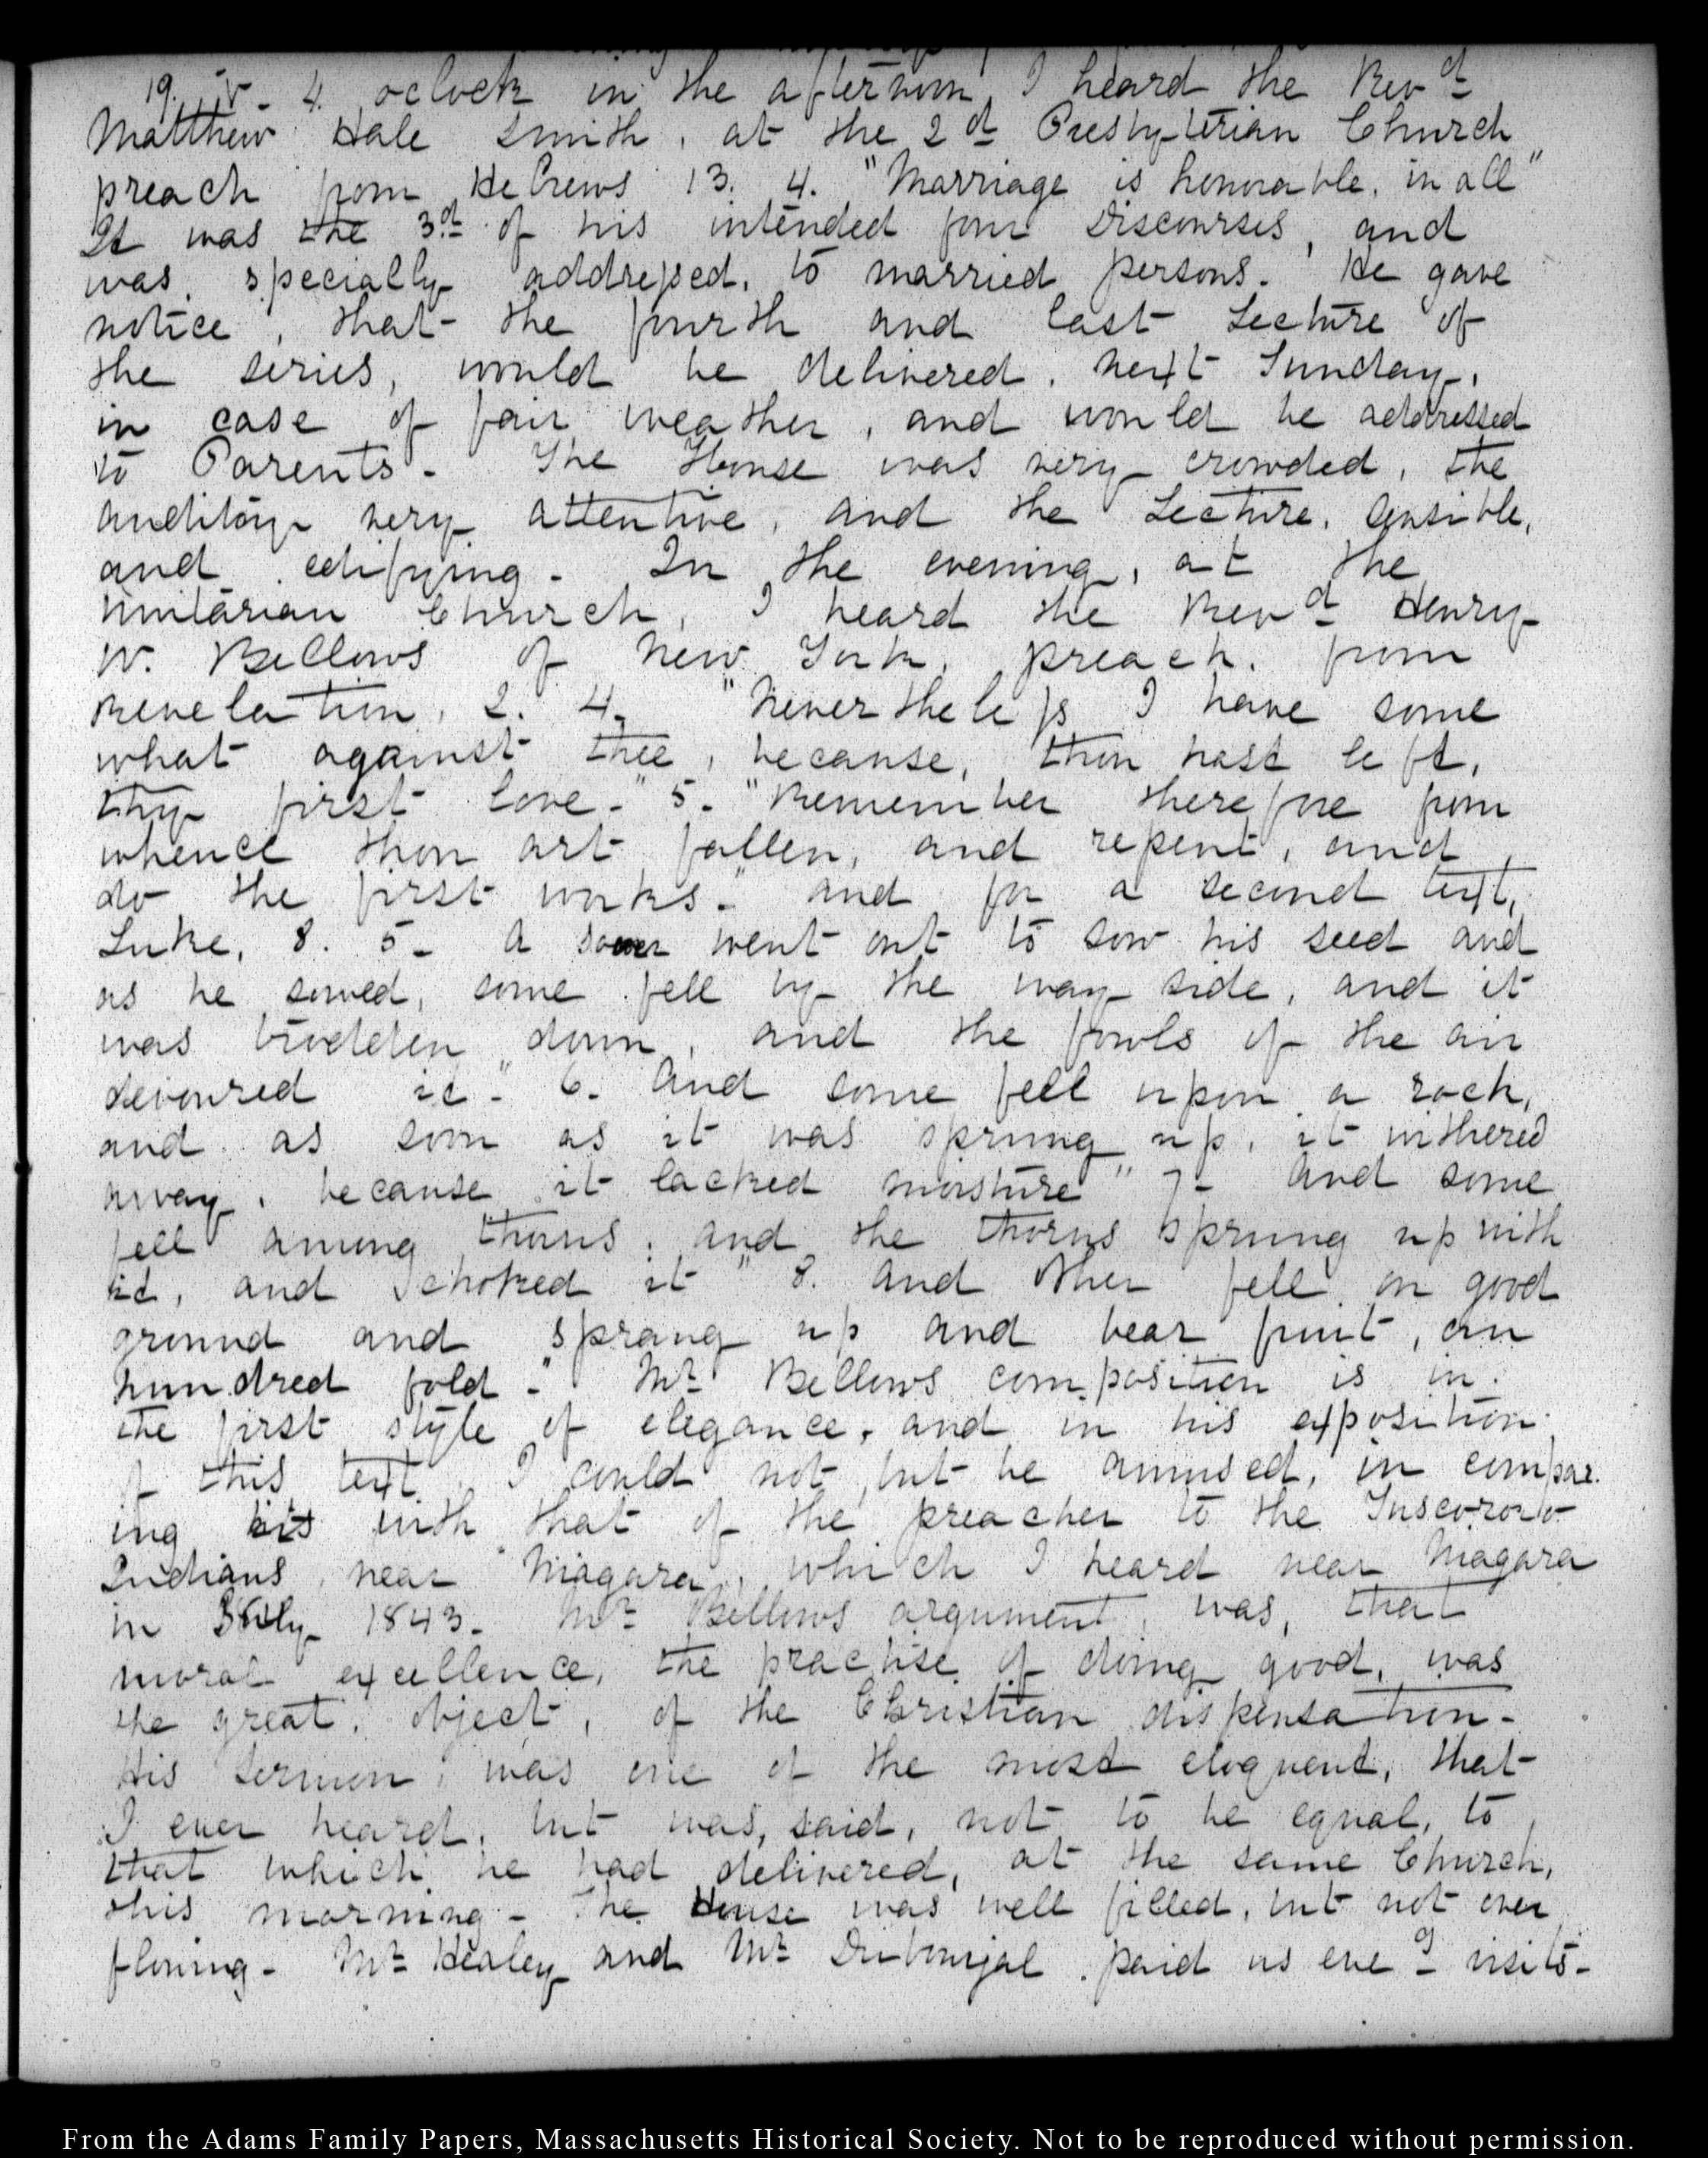 19. IV. 4 oclock in the afternoon, I heard the Revd
Matthew Hale Smith, at the 2d Presbyterian Church
preach from Hebrews 13. 4. "Marriage is honorable, in all"
It was the 3d of his intended four Discourses, and
was, specially addressed, to married persons. He gave
notice, that the fourth and last Lecture of
the series, would be delivered, next Sunday,
in case of fair weather, and would be addressed
to Parents. The House was very crowded, the
auditory very attentive, and the Lecture, sensible,
and edifying. In the evening, at the
Unitarian Church, I heard the Revd Henry
W. Bellows of New York, preach, from
Revelation, 2. 4. "Nevertheless I have some
what against thee, because, thou hast left,
thy first love." 5. "Remember therefore from
whence thou art fallen, and repent, and
do the first works." and for a second text,
Luke, 8. 5. A sower went out to sow his seed and
as he sowed, some fell by the way side, and it
was trodden down, and the fowls of the air
devoured it." 6. And some fell upon a rock,
and as soon as it was sprung up, it withered
away, because it lacked moisture" 7. And some
fell among thorns, and the thorns sprung up with
it, and choked it" 8. And other fell on good
ground and sprang up and bear fruit, an
hundred fold." Mr Bellows composition is in
the first style of elegance, and in his exposition
of this text, I could not but be amused, in compar-
ing his with that of the preacher to the Tuscorora
Indians, near Niagara, which I heard near Niagara
in July 1843. Mr Bellows argument, was, that
moral excellence, the practise of doing good, was
the great, object, of the Christian dispensation.
His sermon, was one of the most eloquent, that
I ever heard, but was, said, not to be equal, to
that which he had delivered, at the same Church,
this morning. The House was well filled, but not over
flowing. Mr Healey and Mr Dubourjal paid us eveg visits.
From the Adams Family Papers, Massachusetts Historical Society. Not to be reproduced without permission.